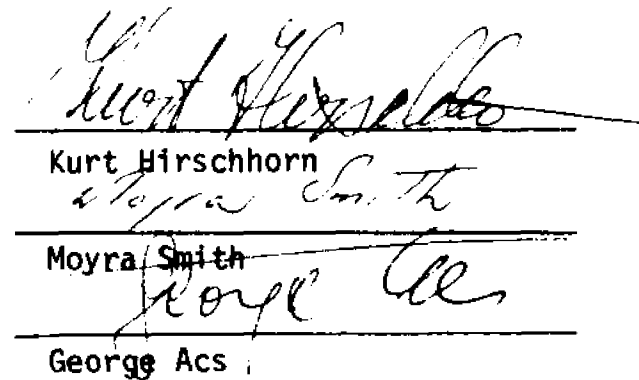 Kurt Hirschhorn
Kurt Hirschhorn
Moyra Smith
Moyra Smith
George Acs
George Acs